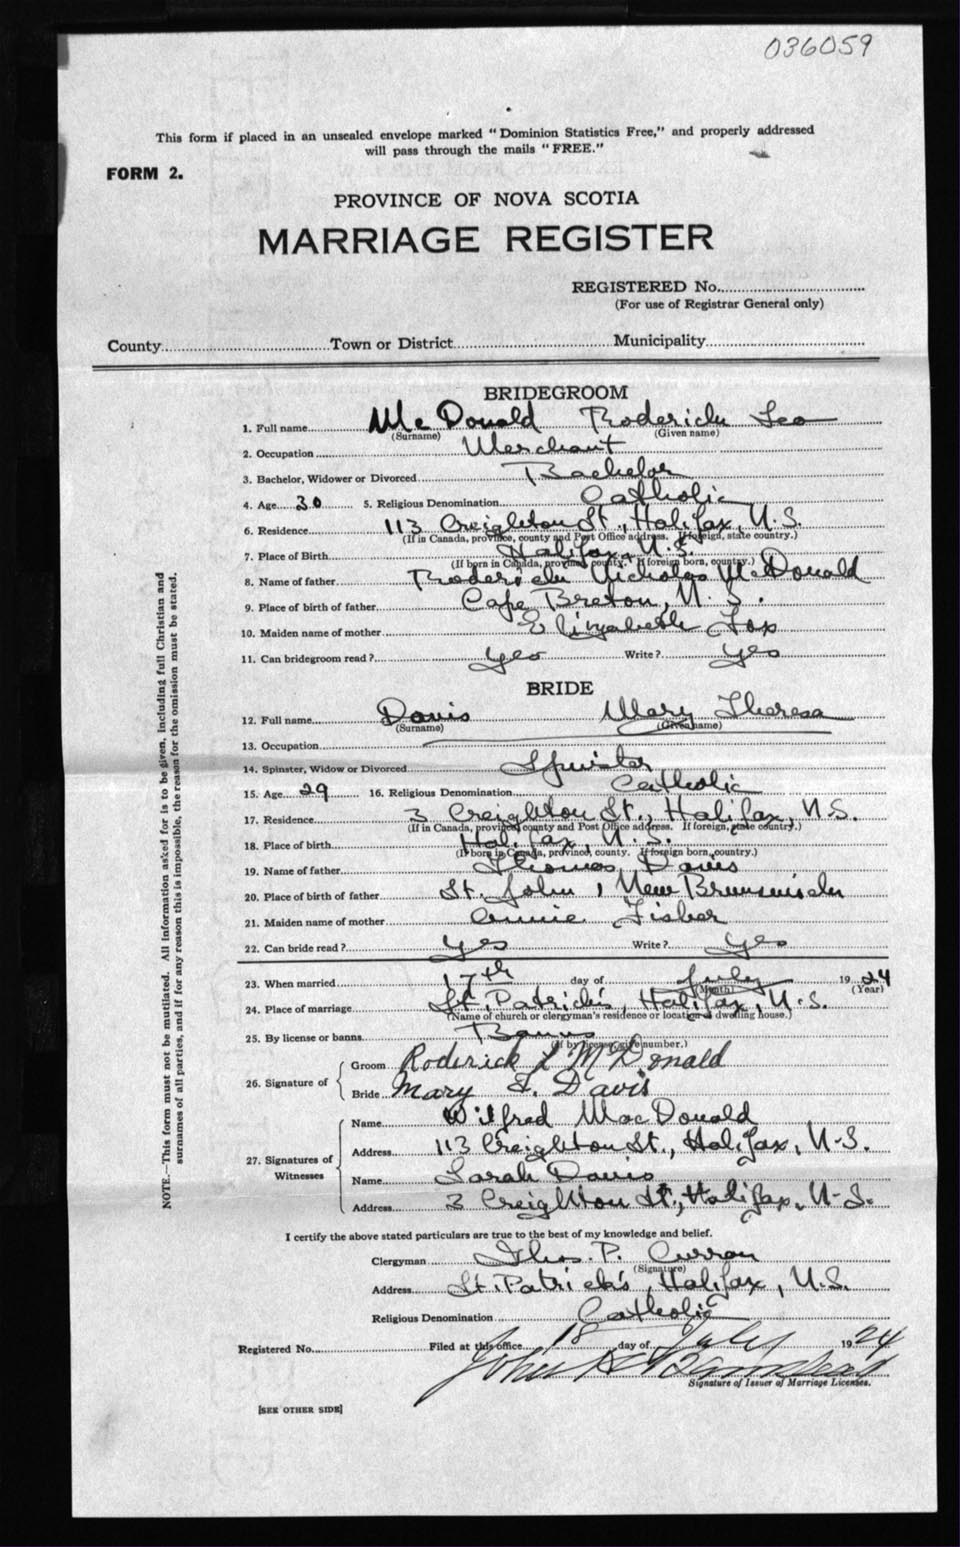 036059
This form if placed in an unsealed envelope marked "Dominion Statistics Free," and properly addressed
will pass through the mails "FREE."
FORM 2.
PROVINCE OF NOVA SCOTIA
MARRIAGE REGISTER
REGISTERED No.
(For use of Registrar General only)
County Town or District Municipality
BRIDEGROOM
1. Full name McDonald Roderick Leo
(Surname) (Given name)
2. Occupation Merchant
3. Bachelor, Widower or Divorced Bachelor
4. Age 30 5. Religious Denomination Catholic
6. Residence 113 Creighton St., Halifax, N.S.
(If in Canada, province, county and Post Office address. If foreign, state country.)
7. Place of Birth Halifax, N.S.
(If born in Canada, province, county. If foreign born, country.)
8. Name of father Roderick Nicholas McDonald
9. Place of birth of father Cape Breton, N.S.
10. Maiden name of mother Elizabeth Fox
11. Can bridegroom read? yes Write? yes
BRIDE
12. Full name Davis Mary Theresa
(Surname) (Given name)
13. Occupation
14. Spinster, Widow or Divorced Spinster
15. Age 29 16. Religious Denomination Catholic
17. Residence 3 Creighton St., Halifax, N.S.
(If in Canada, province, county and Post Office address. If foreign, state country.)
18. Place of birth Halifax, N.S.
(If born in Canada, province, county. If foreign born, country.)
19. Name of father Thomas Davis
20. Place of birth of father St. John, New Brunswick
21. Maiden name of mother Annie Fisher
22. Can bride read? yes Write? yes
23. When married 17th day of July 1924
(Month) (Year)
24. Place of marriage St. Patrick's, Halifax, N.S.
(Name of church or clergyman's residence or location of dwelling house.)
25. By license or banns Banns
(If by license, give number.)
26. Signature of Groom Roderick L McDonald
Bride Mary T. Davis
27. Signatures of Witnesses Name Wilfred MacDonald
Address 113 Creighton St., Halifax, N.S.
Name Sarah Davis
Address 3 Creighton St., Halifax, N.S.
I certify the above stated particulars are true to the best of my knowledge and belief.
Clergyman Thos. P. Curran
(Signature)
Address St. Patrick's, Halifax, N.S.
Religious Denomination Catholic
Registered No. Filed at this office 18 day of July 1924
John
Signature of Issuer of Marriage Licenses.
[SEE OTHER SIDE]
NOTE.—This form must not be mutilated. All information asked for is to be given, including full Christian and
surnames of all parties, and if for any reason this is impossible, the reason for the omission must be stated.